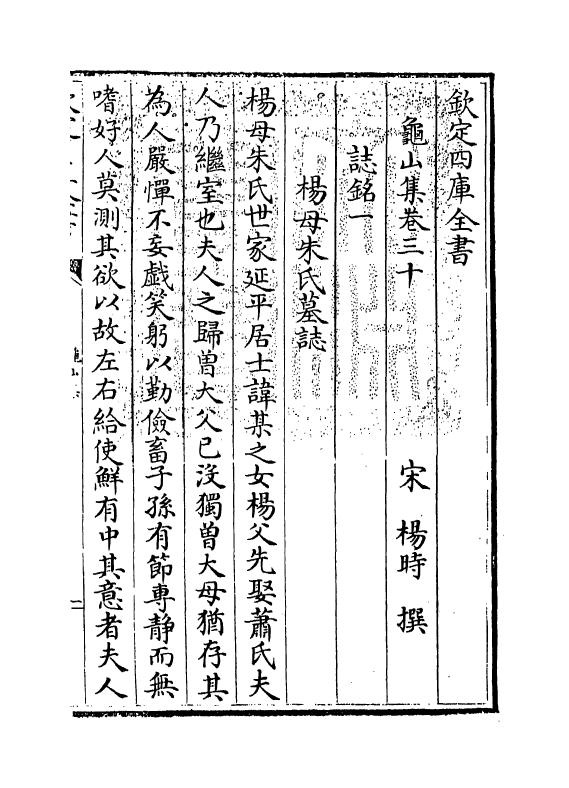 欽定四庫全書
龜山集卷三十　宋　楊時　撰
誌銘一
楊母朱氏墓誌
楊母朱氏世家延平居士諱某之女楊父先娶蕭氏夫
人乃繼室也夫人之歸曾大父已沒獨曾大母猶存其
為人嚴憚不妄戯笑躬以勤儉畜子孫有節專静而無
嗜好人莫測其欲以故左右給使鮮有中其意者夫人